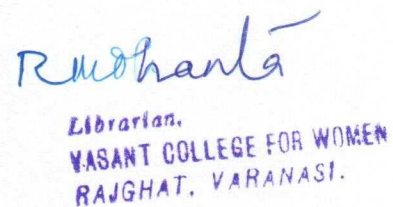 RMohanta
Librarian,
VASANT COLLEGE FOR WOMEN
RAJGHAT, VARANASI.